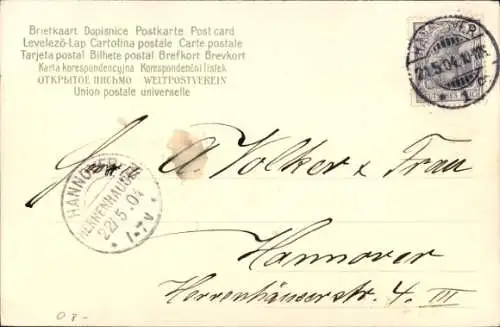 Briefkaart Dopisnice Postkarte Post card
Levelező-Lap Cartolina postale Carte postale
Tarjeta postal Bilhete postal Brefkort Brevkort
Karta korespondencyjna Korespondenční lístek
ОТКРЫТОЕ ПИСЬМО WELTPOSTVEREIN
Union postale universelle
HANNOVER
21.5.04.
* 1 c.
Herrn A. Volker & Frau
HANNOVER
HERRENHAUSEN
22/5.04
* 1-7V *
Hannover
Herrenhäuserstr. 4. III
08-